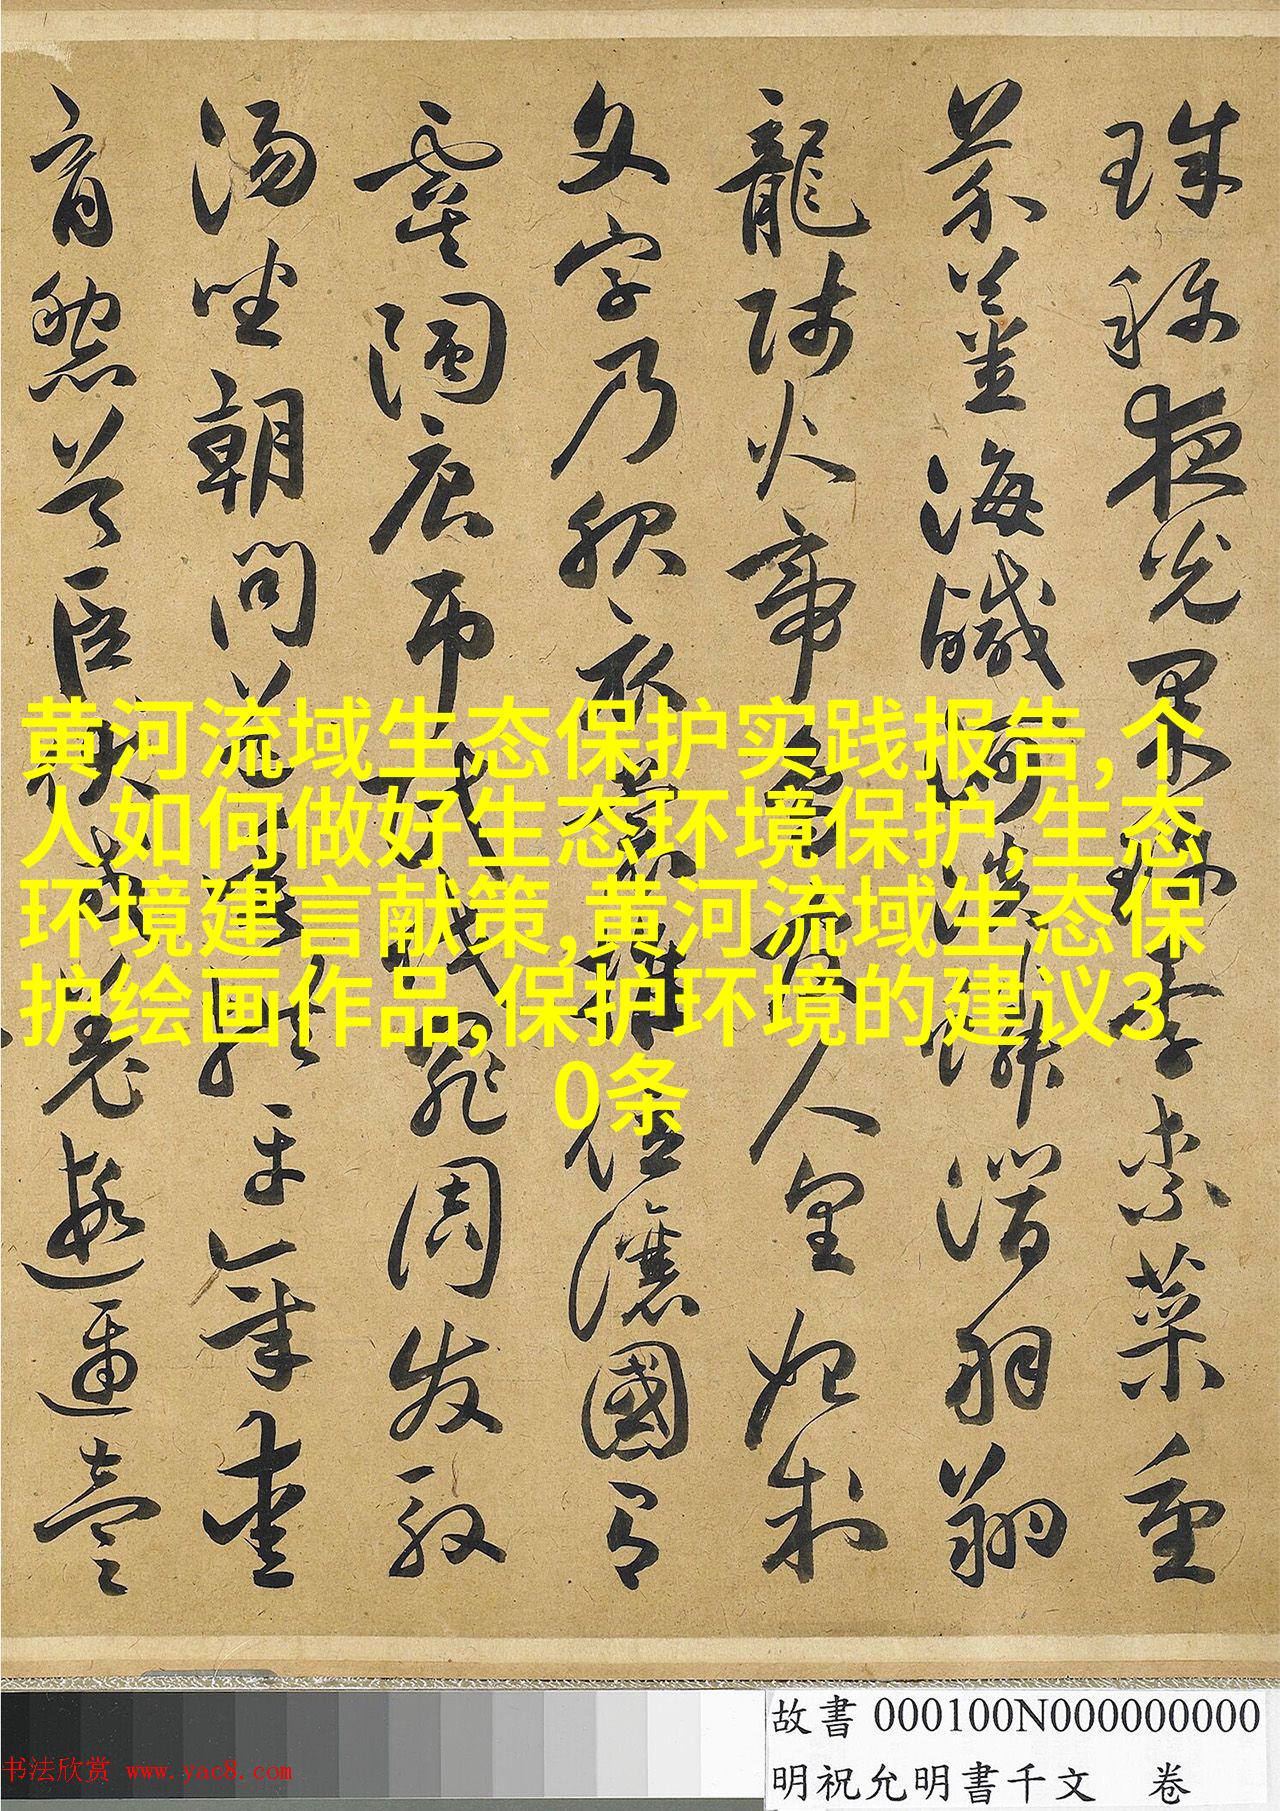 珠称夜光果珍李柰菜重
芥薑海鹹河淡鱗潛羽翔
龍師火帝鳥官人皇始制
文字乃服衣裳推位讓國有
虞陶唐弔民伐罪周发殷
湯坐朝問道垂拱平章愛
育黎首臣伏戎羌遐邇壹
黄河流域生态保护实践报告,个
人如何做好生态环境保护,生态
环境建言献策,黄河流域生态保
护绘画作品,保护环境的建议3
0条
故書 000100N000000000
明祝允明書千文 卷
书法欣赏 www.yac8.com